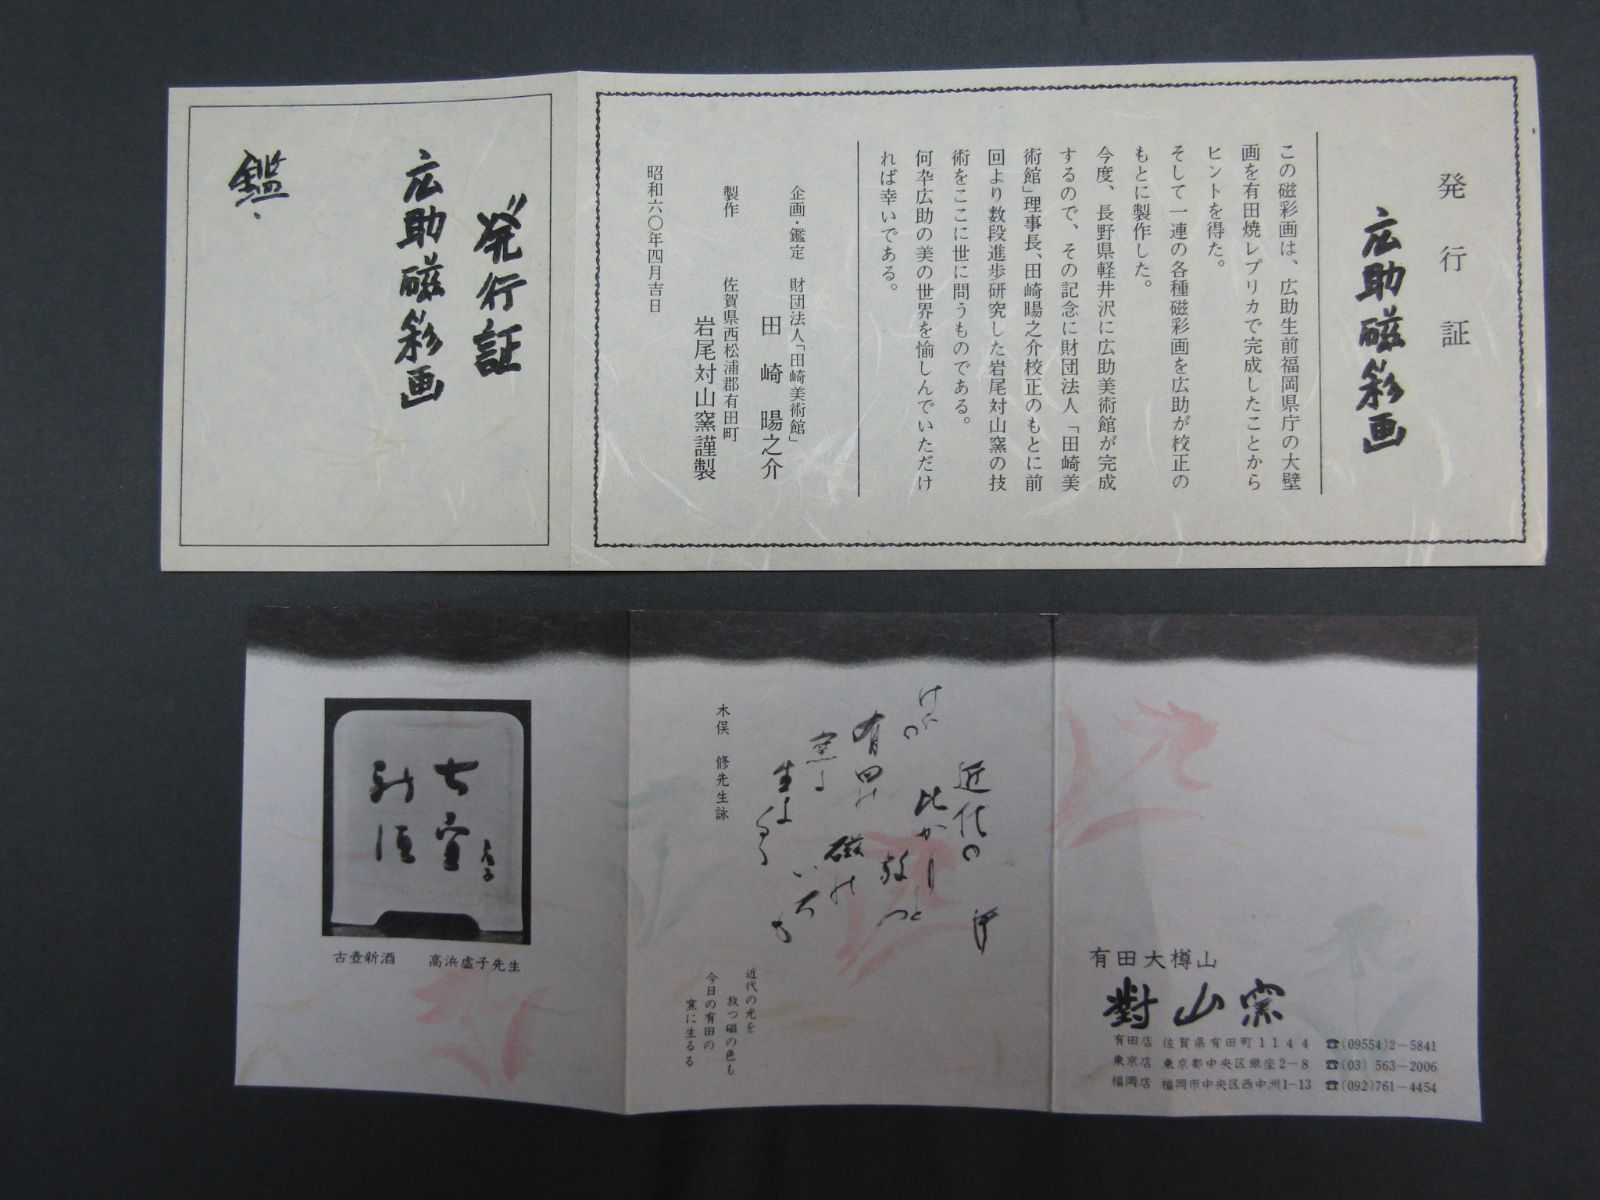 発行証
広助磁彩画
この磁彩画は、広助生前福岡県庁の大壁
画を有田焼レプリカで完成したことから
ヒントを得た。
そして一連の各種磁彩画を広助が校正の
もとに製作した。
今度、長野県軽井沢に広助美術館が完成
するので、その記念に財団法人「田崎美
術館」理事長、田崎暘之介校正のもとに前
回より数段進歩研究した岩尾対山窯の技
術をここに世に問うものである。
何卒広助の美の世界を愉しんでいただけ
れば幸いである。
企画・鑑定 財団法人「田崎美術館」
田崎暘之介
製作 佐賀県西松浦郡有田町
岩尾対山窯謹製
昭和六〇年四月吉日
発行証
広助磁彩画
鑑
有田大樽山
對山窯
有田店 佐賀県有田町1144 ☎(09554)2-5841
東京店 東京都中央区銀座2-8 ☎(03)563-2006
福岡店 福岡市中央区西中洲1-13 ☎(092)761-4454
木俣 修先生詠
近代の光を
放つ磁の色も
今日の有田の
窯に生るる
古壺新酒 高浜虚子先生